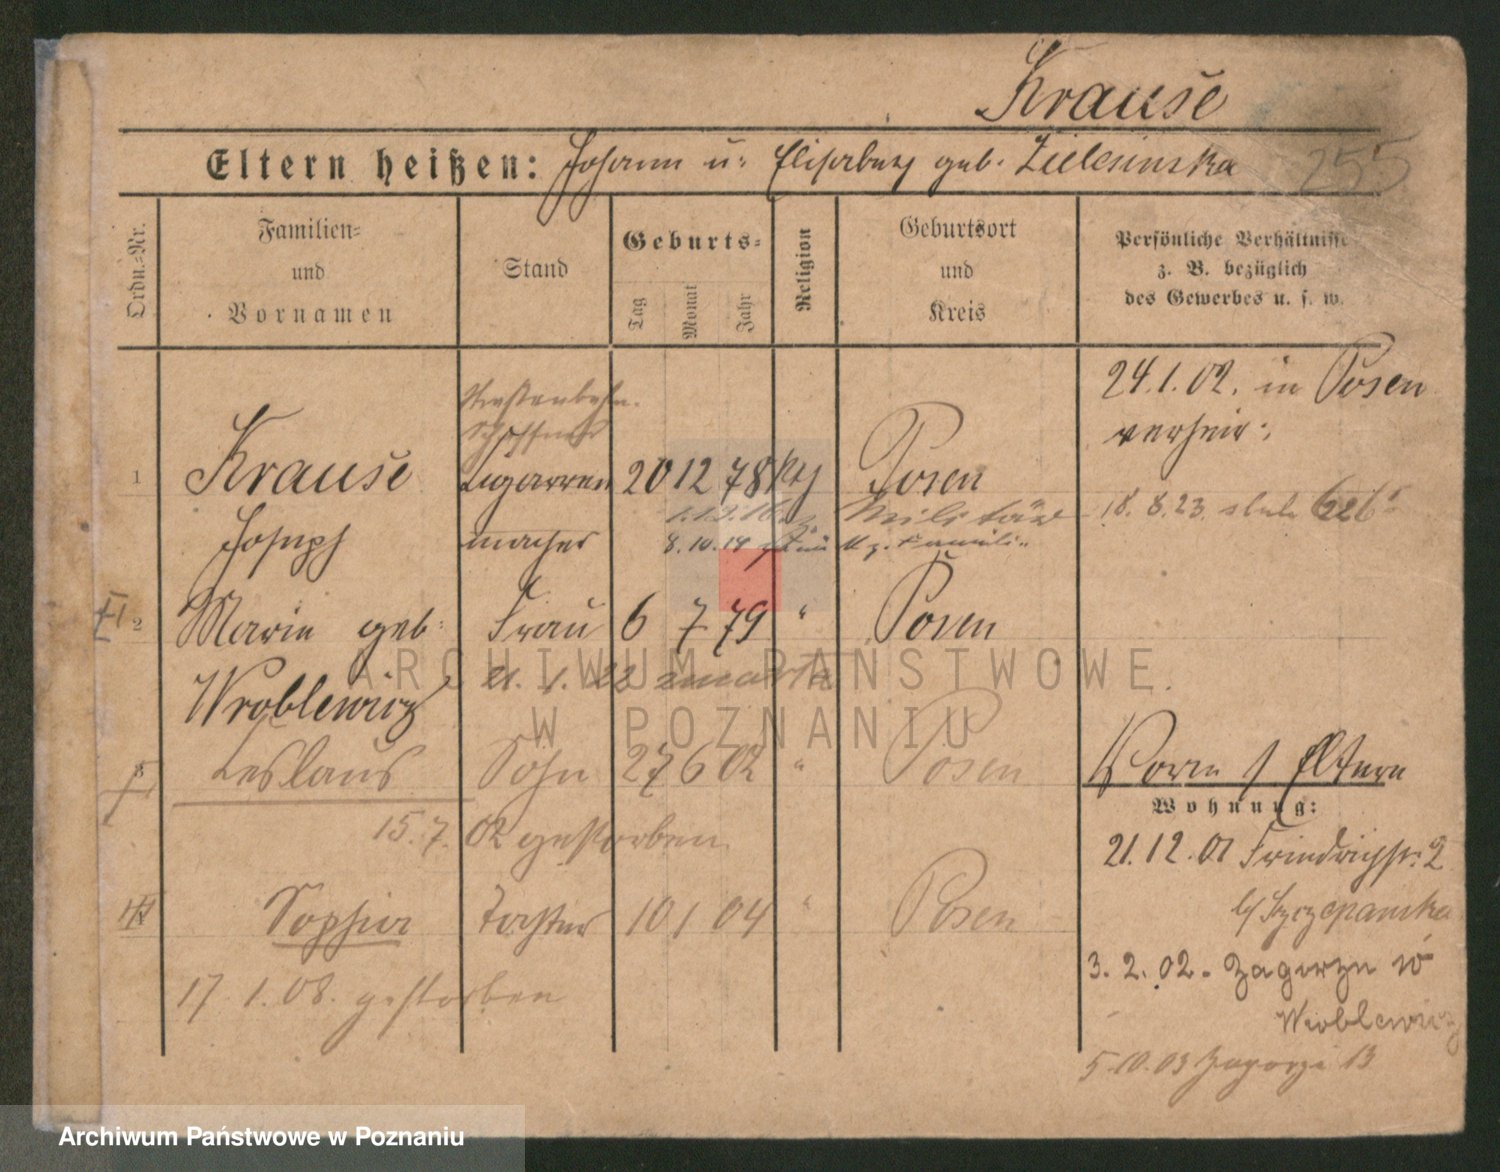 Krause
Eltern heißen: Johann u. Elisabeth geb. Zielesinska 255
Ordn.-Nr.
Familien- und Vornamen
Stand
Geburts-
Tag Monat Jahr
Religion
Geburtsort und Kreis
Persönliche Verhältnisse z. B. bezüglich des Gewerbes u. s. w.
24.1.02. in Posen
verheir.
Straßenbahn.
Schaffner
1 Krause Cigarren 20 12 78 kth Posen
18. 8. 23. 6265
Joseph macher
Militär
8.10.14
2 Marie geb. Frau 6 7 79 " Posen
Wroblewicz
21. 1. 22 zmarła
3 Leslaus Sohn 27 6 02 " Posen
Vorm / Eltern
Wohnung:
15.7. 02 gestorben
21.12.01 Friedrichstr. 2
b/ Szczepanska
4 Sophia Tochter 10 1 04 " Posen
3. 2. 02. Zagorze 10
17. 1. 08. gestorben
Wroblewicz
5.10.03 Zagorze 13
ARCHIWUM PAŃSTWOWE
W POZNANIU
Archiwum Państwowe w Poznaniu